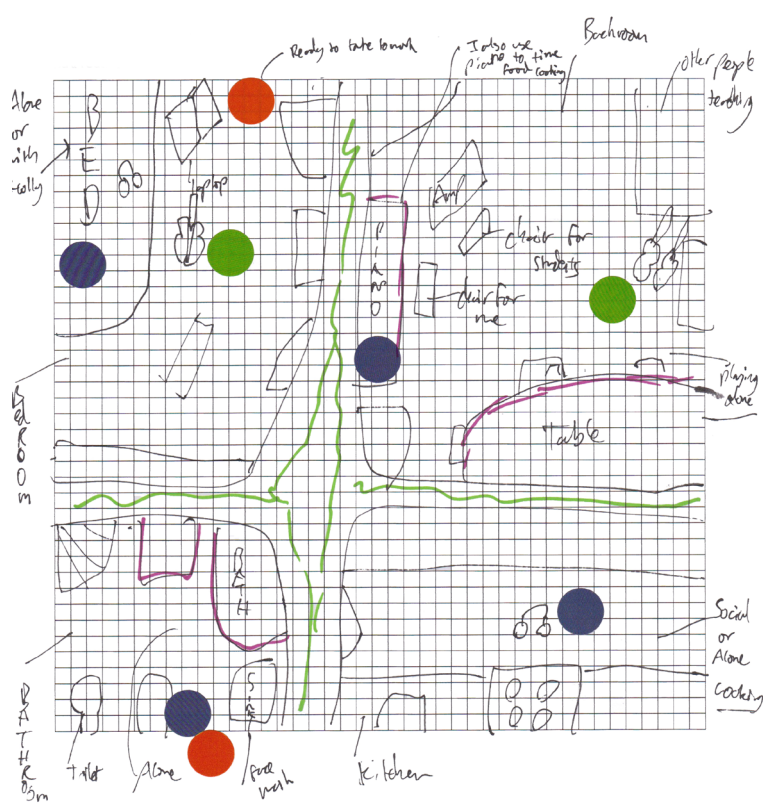 Ready to take to work
I also use
piano to time
food cooking
Bachroom
other people
teaching
Alone
or
with
BED
laptop
Amp
PIANO
chair for
students
chair for
me
playing
alone
Table
BedROOM
BATH
Social
or
Alone
Cooking
SINK
BATHROom
Toilet
Alone
face
wash
Kitchen